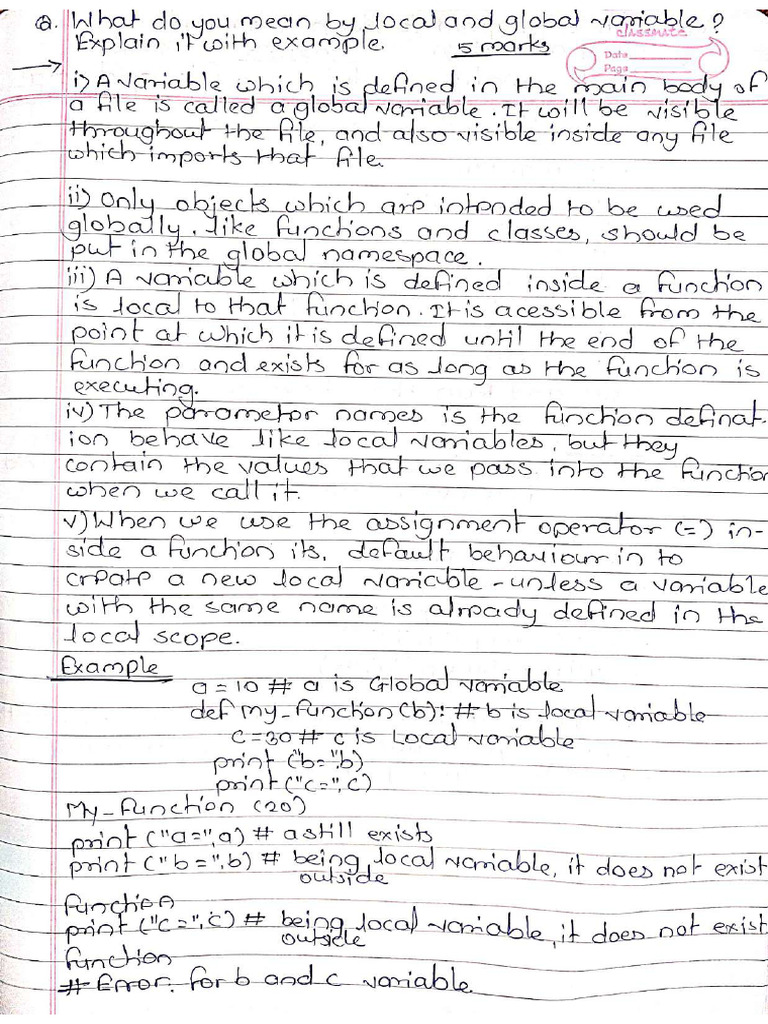 Q. What do you mean by local and global variable?
Explain it with example. 5 marks
classmate
Date
Page
→
i) A variable which is defined in the main body of
a file is called a global variable. It will be visible
throughout the file, and also visible inside any file
which imports that file.
ii) Only objects which are intended to be used
globally. like functions and classes, should be
put in the global namespace.
iii) A variable which is defined inside a function
is local to that function. It is acessible from the
point at which it is defined until the end of the
function and exists for as long as the function is
executing.
iv) The parametor names is the function definat-
ion behave like local variables, but they
contain the values that we pass into the function
when we call it.
v) When we use the assignment operator (=) in-
side a function its. default behaviour in to
create a new local variable - unless a variable
with the same name is already defined in the
local scope.
Example
a = 10 # a is Global variable
def my_function(b): # b is local variable
c = 30 # c is Local variable
print ("b=",b)
print ("c=",c)
My_function (20)
print ("a=",a) # a still exists
print ("b=",b) # being local variable, it does not exist
outside
function
print ("c=",c) # being local variable, it does not exist
outside
function
# Error. for b and c variable.